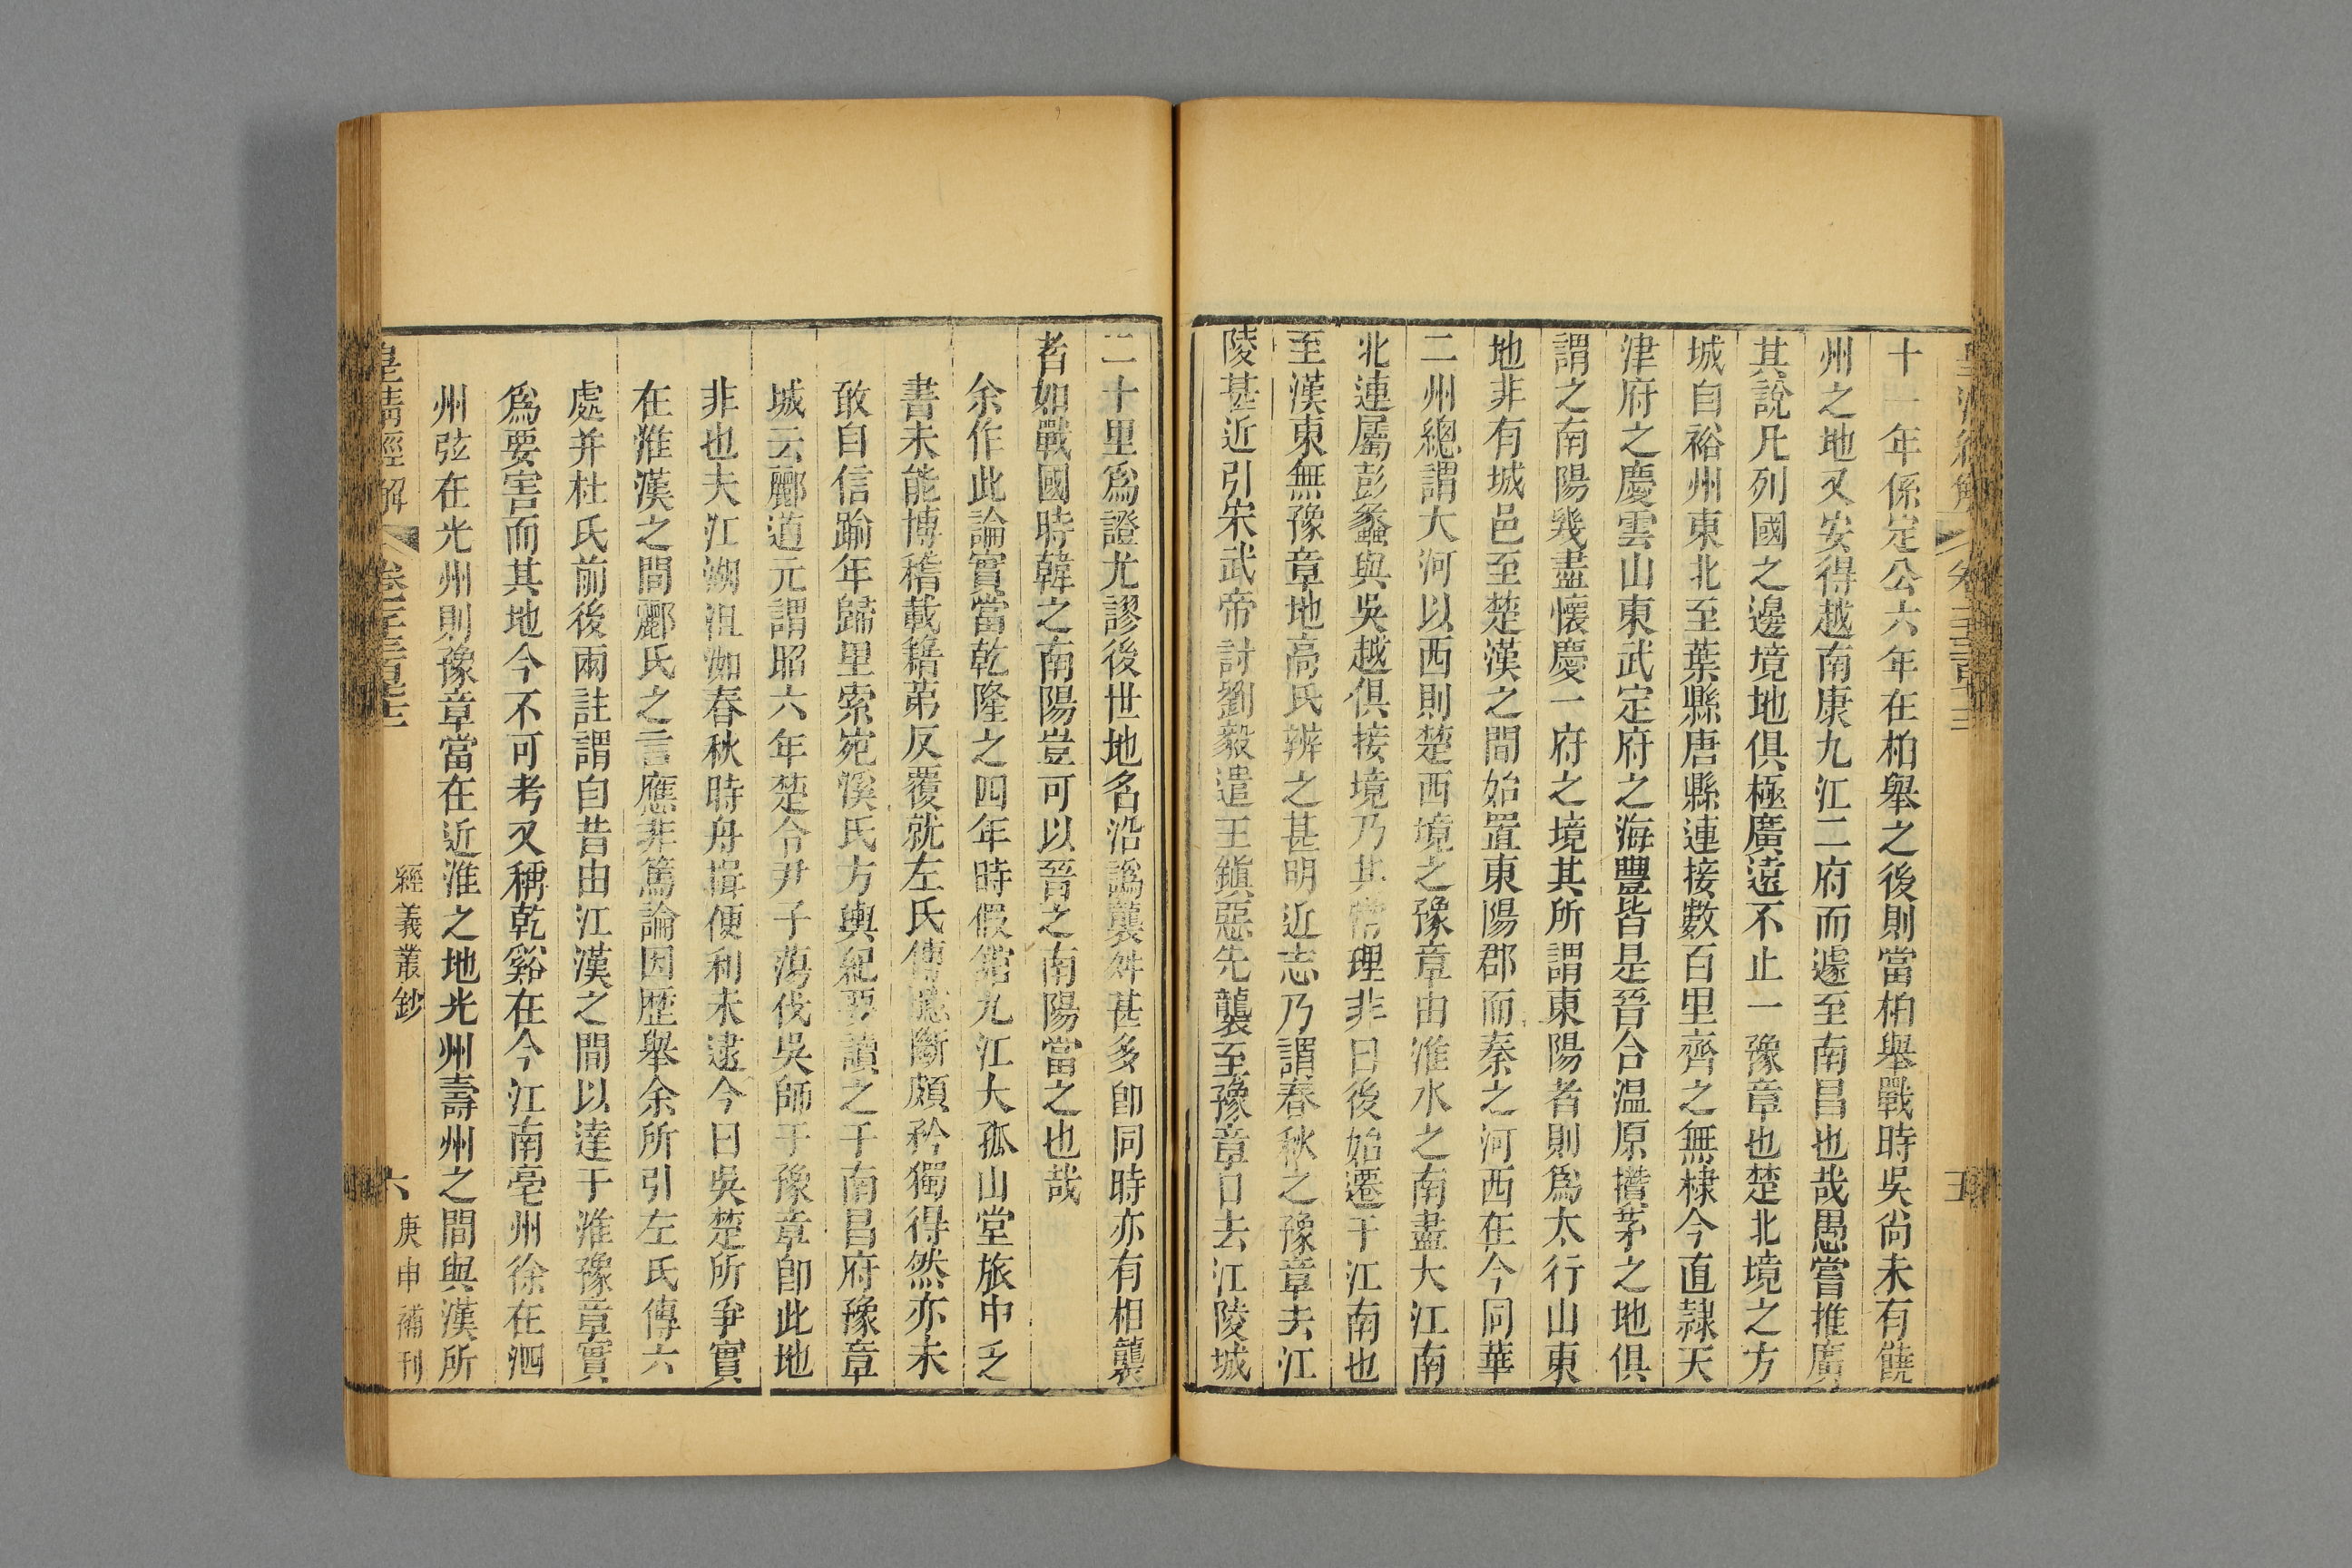 十一年係定公六年在柏舉之後則當柏舉戰時吳尙未有饒
州之地又安得越南康九江二府而遽至南昌也哉愚嘗推廣
其說凡列國之邊境地俱極廣遠不止一豫章也楚北境之方
城自裕州東北至葉縣唐縣連接數百里齊之無棣今直隸天
津府之慶雲山東武定府之海豐皆是晉合温原攢茅之地俱
謂之南陽幾盡懷慶一府之境其所謂東陽者則爲太行山東
地非有城邑至楚漢之間始置東陽郡而秦之河西在今同華
二州總謂大河以西則楚西境之豫章由淮水之南盡大江南
北連屬彭蠡與吳越俱接境乃其常理非日後始遷于江南也
至漢東無豫章地高氏辨之甚明近志乃謂春秋之豫章去江
陵甚近引宋武帝討劉毅遣王鎭惡先襲至豫章口去江陵城
二十里爲證尤謬後世地名沿譌襲舛甚多卽同時亦有相襲
者如戰國時韓之南陽豈可以晉之南陽當之也哉
余作此論實當乾隆之四年時假館九江大孤山堂旅中乏
書未能博稽載籍第反覆就左氏傳臆斷頗矜獨得然亦未
敢自信踰年歸里索宛溪氏方輿紀要讀之于南昌府豫章
城云酈道元謂昭六年楚令尹子蕩伐吳師于豫章卽此地
非也夫江湖沮洳春秋時舟揖便利未逮今日吳楚所爭實
在淮漢之間酈氏之言應非篤論因歷舉余所引左氏傳六
處并杜氏前後兩註謂自昔由江漢之間以達于淮豫章實
爲要害而其地今不可考又稱乾谿在今江南亳州徐在泗
州弦在光州則豫章當在近淮之地光州壽州之間與漢所
皇淸經解
經義叢鈔
六
庚申補刊